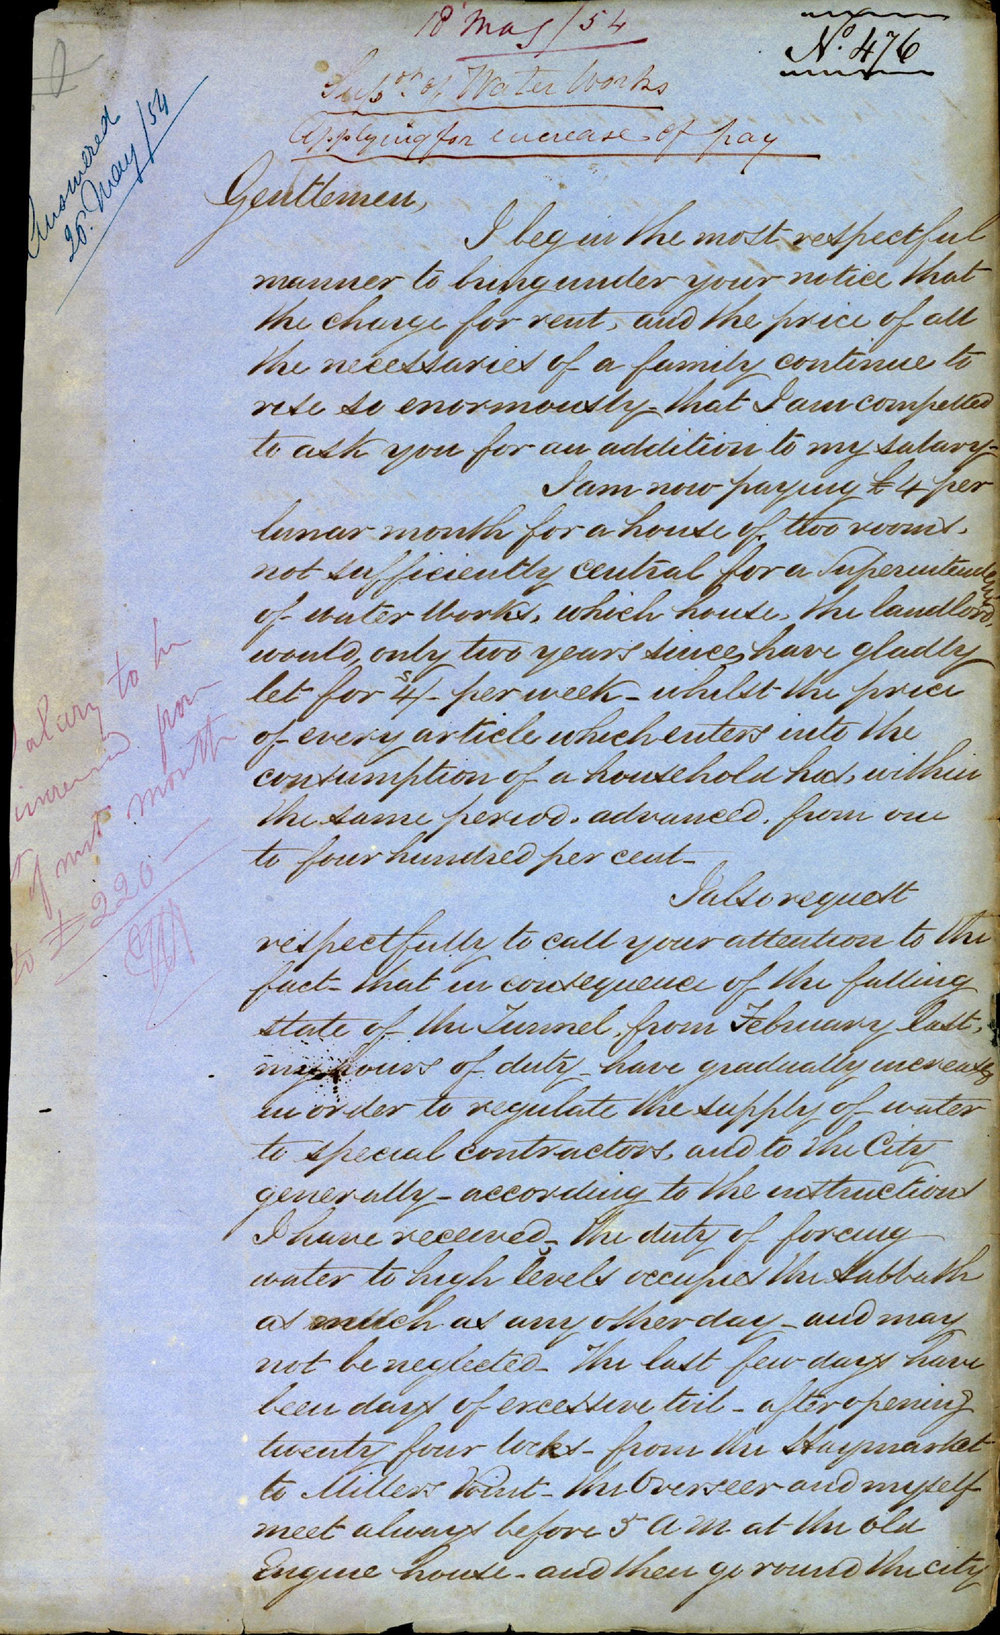 18 May /54
No. 476
Supdt. of Water Works
Applying for increase of pay
Answered
26. May /54
Gentlemen,
I beg in the most respectful
manner to bring under your notice that
the charge for rent, and the price of all
the necessaries of a family continue to
rise so enormously - that I am compelled
to ask you for an addition to my salary -
I am now paying £4 per
lunar month for a house of two rooms,
not sufficiently central for a Superintendent
of Water Works, which house, the landlord,
would, only two years since, have gladly
let for 4s/- per week - whilst the price
of every article which enters into the
consumption of a household has, within
the same period, advanced, from one
to four hundred per cent -
I also request
respectfully to call your attention to the
fact - that in consequence of the falling
state of the Tunnel, from February last,
my hours of duty - have gradually increased
in order to regulate the supply of water
to special contractors, and to the City
generally - according to the instructions
I have received - the duty of forcing
water to high levels occupies the Sabbath
as much as any other day - and may
not be neglected - The last few days have
been days of excessive toil - after opening
twenty four locks - from the Haymarket
to Millers Point - the Overseer and myself
meet always before 5 A M at the old
Engine house - and then go round the city
Salary to be
increased from
1st of next month
to £220 -